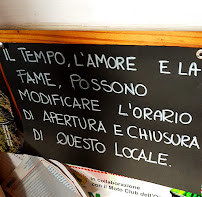 IL TEMPO, L'AMORE E LA
FAME, POSSONO
MODIFICARE L'ORARIO
DI APERTURA E CHIUSURA
DI QUESTO LOCALE.
In collaborazione
con il Moto Club dell'O